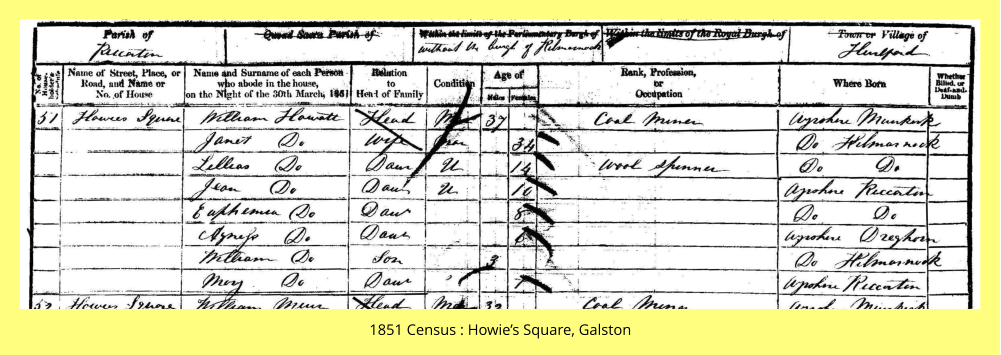 Parish of
Riccarton
Quoad Sacra Parish of
Within the limits of the Parliamentary Burgh of
without the burgh of Kilmarnock
Within the limits of the Royal Burgh of
Town or Village of
Hurlford
No. of House-holder's Schedule
Name of Street, Place, or Road, and Name or No. of House
Name and Surname of each Person who abode in the house, on the Night of the 30th March, 1851
Relation to Head of Family
Condition
Age of
Males
Females
Rank, Profession, or Occupation
Where Born
Whether Blind, or Deaf-and-Dumb
51 Howies Square William Howatt Head Mar 37 Coal Miner Ayrshire Muirkirk
Janet Do Wife Mar 34 Do Kilmarnock
Lellias Do Daur U 14 Wool Spinner Do Do
Jean Do Daur U 10 Ayrshire Riccarton
Euphemea Do Daur 8 Do Do
Agness Do Daur 6 Ayrshire Dreghorn
William Do Son 3 Do Kilmarnock
Mary Do Daur Ayrshire Riccarton
52 Howies Square William Muir Head Mar Coal Miner Muirkirk
1851 Census : Howie’s Square, Galston